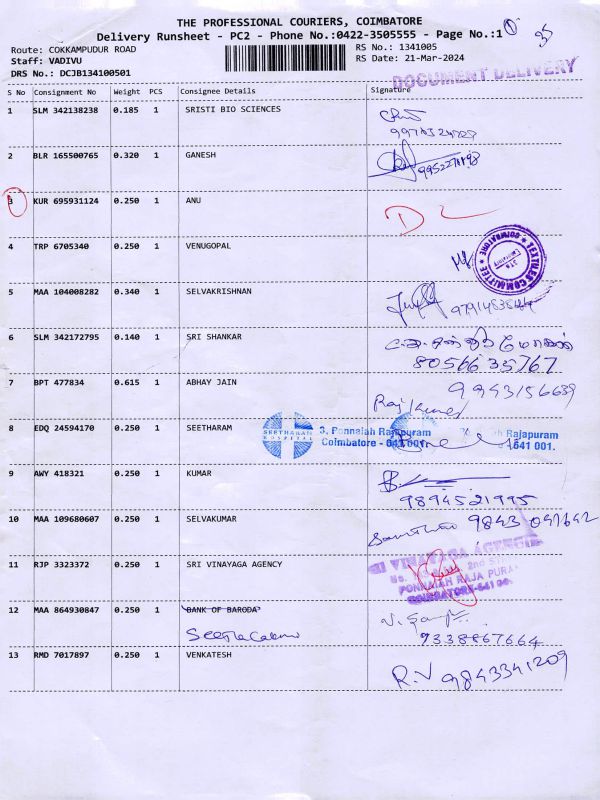 THE PROFESSIONAL COURIERS, COIMBATORE
Delivery Runsheet - PC2 - Phone No.:0422-3505555 - Page No.:1
Route: COKKAMPUDUR ROAD
RS No.: 1341005
Staff: VADIVU
RS Date: 21-Mar-2024
DRS No.: DCJB134100501
DOCUMENT DELIVERY
S No Consignment No Weight PCS Consignee Details Signature
1 SLM 342138238 0.185 1 SRISTI BIO SCIENCES
2 BLR 165500765 0.320 1 GANESH
3 KUR 695931124 0.250 1 ANU
4 TRP 6705340 0.250 1 VENUGOPAL
TEXTILES COMMITTEE
COIMBATORE
5 MAA 104008282 0.340 1 SELVAKRISHNAN
6 SLM 342172795 0.140 1 SRI SHANKAR
8056635767
7 BPT 477834 0.615 1 ABHAY JAIN
Rajkumar
8 EDQ 24594170 0.250 1 SEETHARAM
SEETHARAM HOSPITAL
3, Ponnaiah Rajapuram
Coimbatore - 641 001.
Rajapuram
641 001.
9 AWY 418321 0.250 1 KUMAR
9894521995
10 MAA 109680607 0.250 1 SELVAKUMAR
9843 041642
11 RJP 3323372 0.250 1 SRI VINAYAGA AGENCY
VINAYAGA AGENCIES
PONNAIAH RAJA PURAM
12 MAA 864930847 0.250 1 BANK OF BARODA
9338867664
13 RMD 7017897 0.250 1 VENKATESH
R.V 9843341209